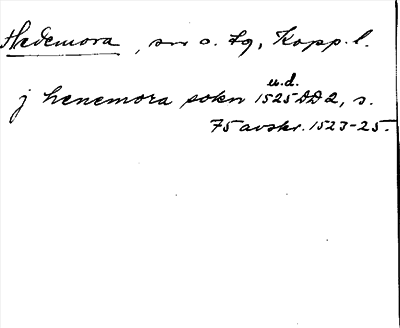 Hedemora, sn o. Fg, Kopp. l.
u.d.
j henemora sokn 1525 DD 2, s.
75 avskr. 1523-25.